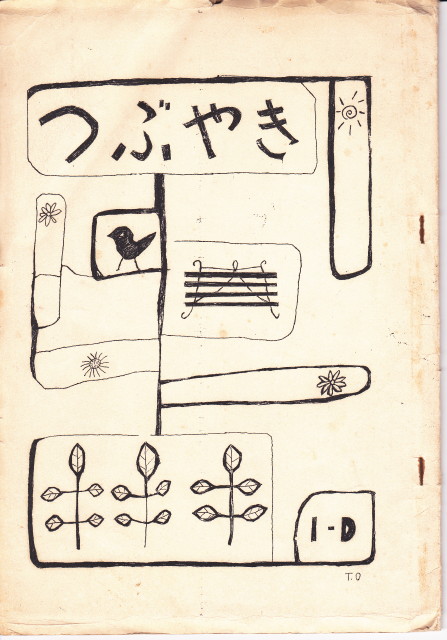 つぶやき
1-D
T.O